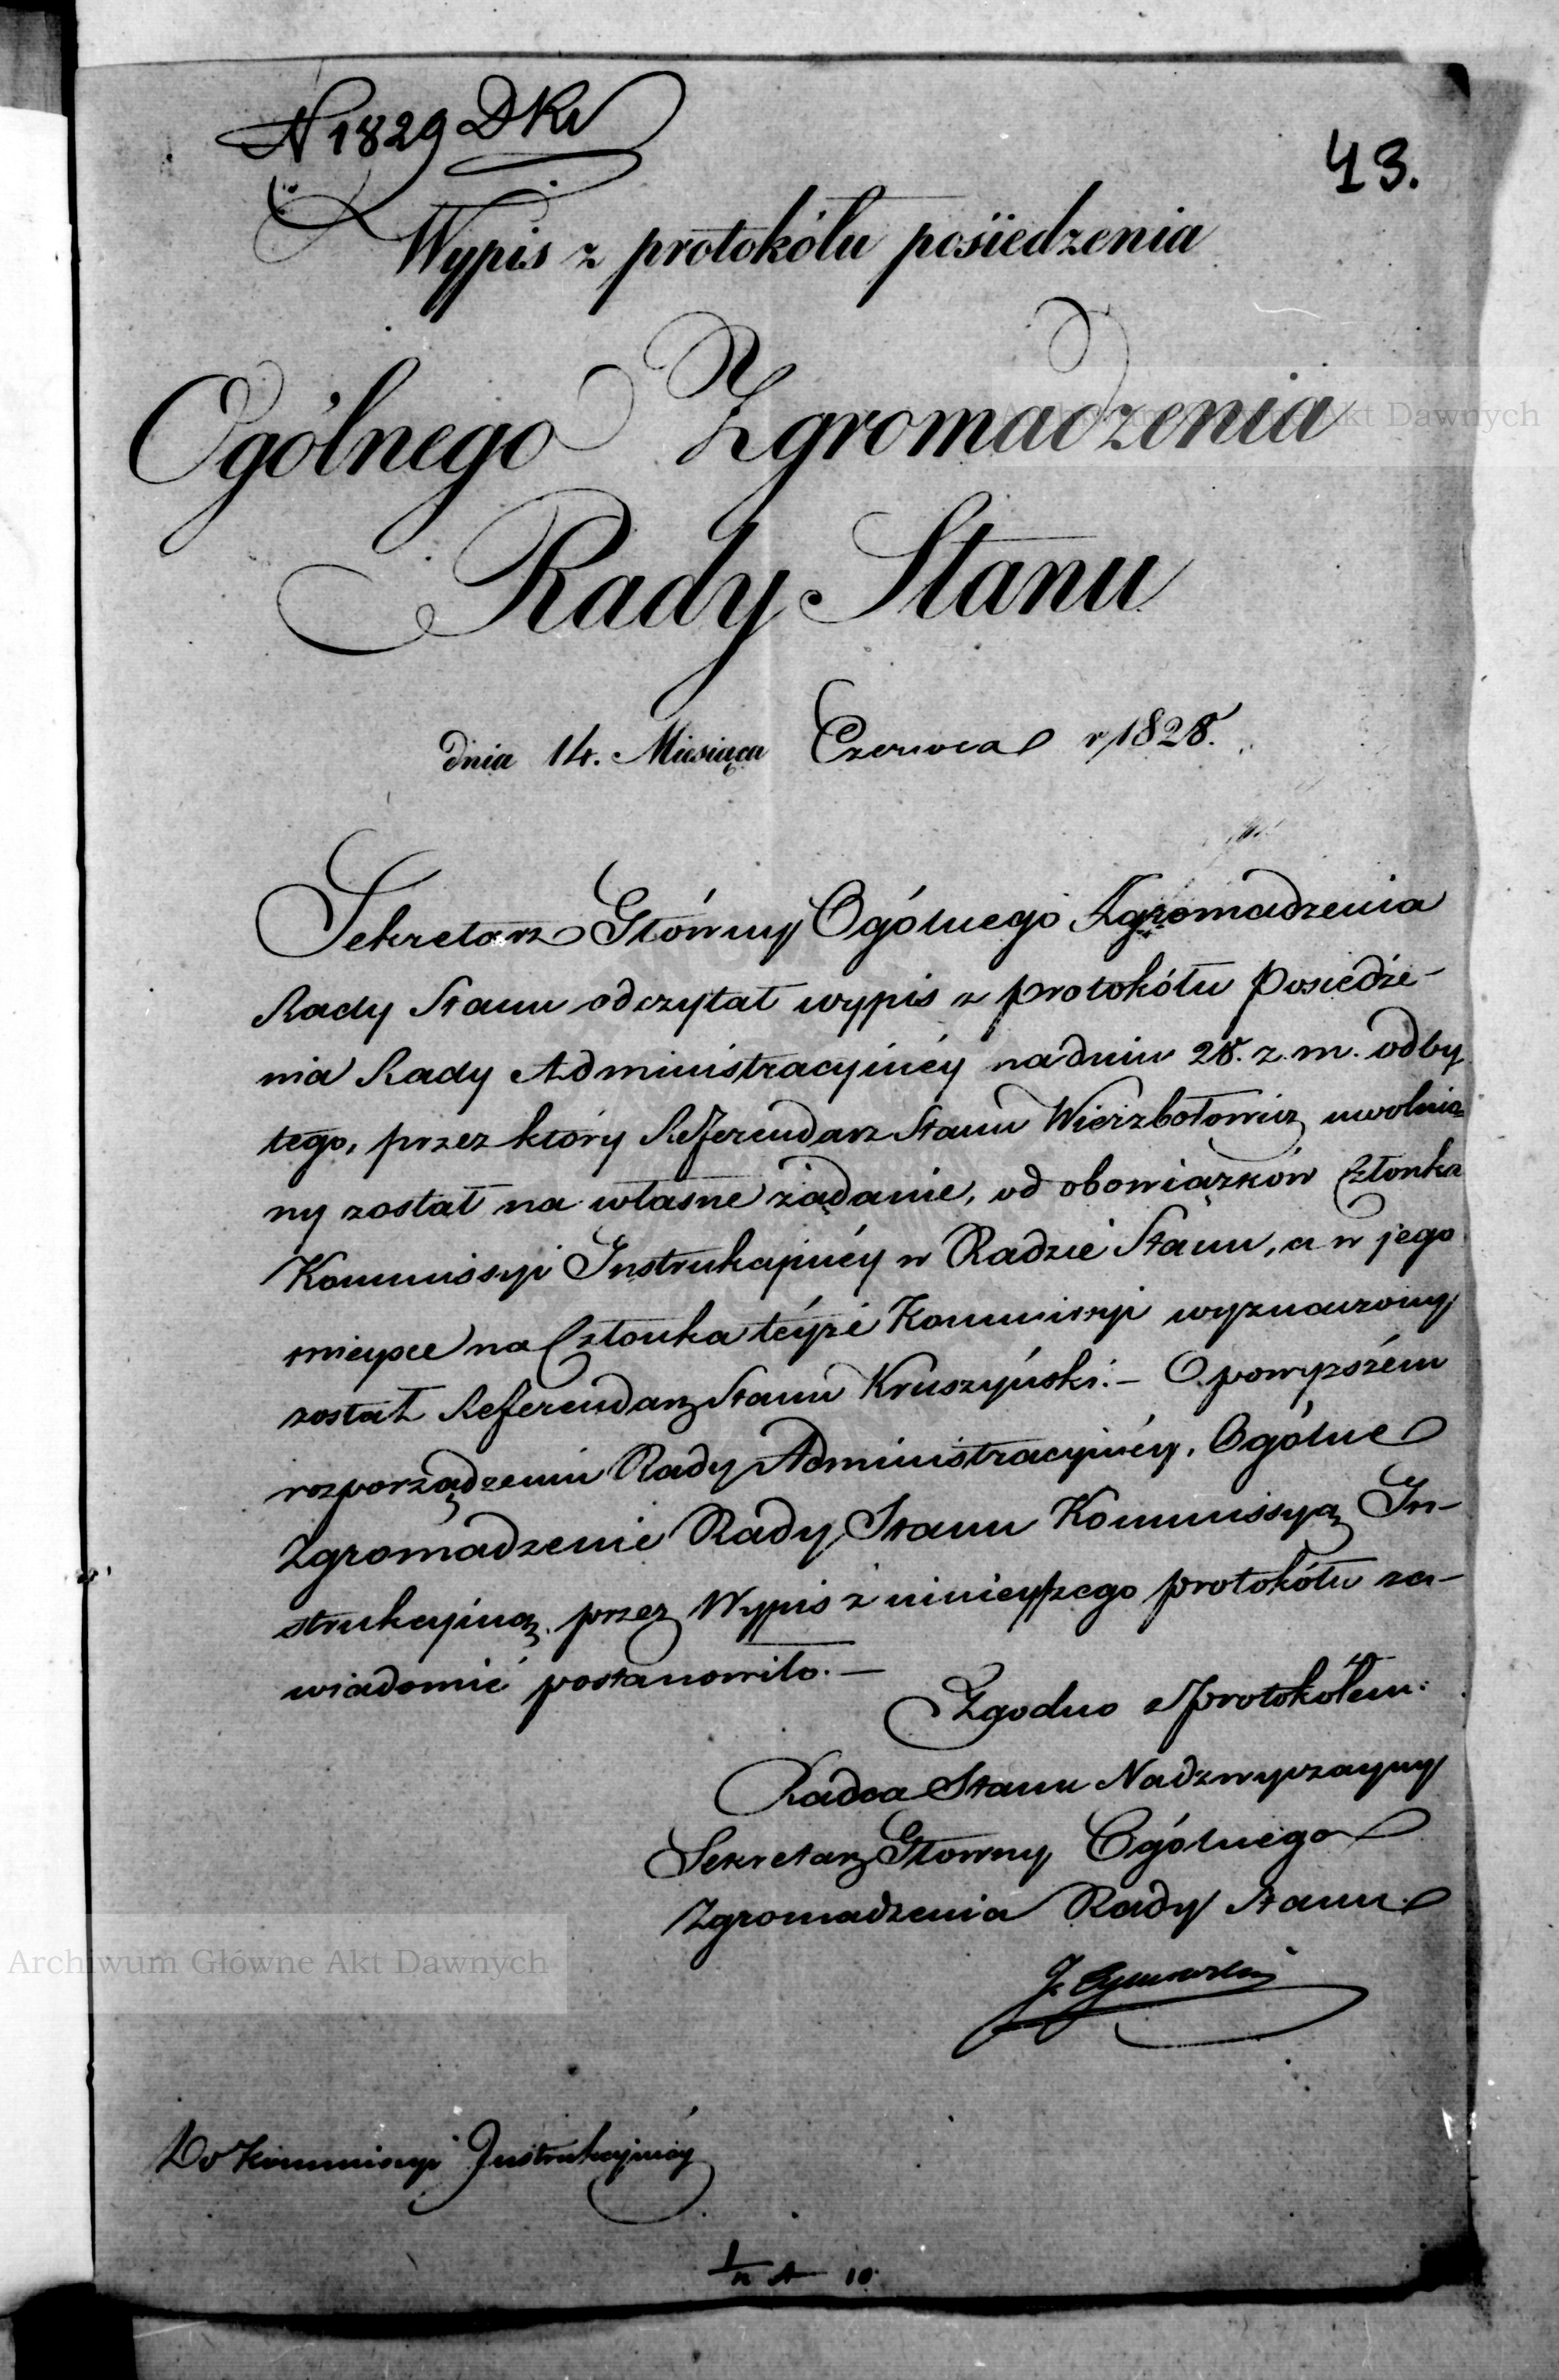 N 1829 DKr
43.
Wypis z protokólu posiedzenia
Ogólnego Zgromadzenia
Rady Stanu
dnia 14. Miesiąca Czerwca r 1828.
Sekretarz Główny Ogólnego Zgromadzenia
Rady Stanu odczytał wypis z protokółu Posiedze-
nia Rady Administracyinéy na dniu 28. z. m. odby
tego, przez który Referendarz Stanu Wierzbołowicz uwolnio=
ny został na własne żądanie, od obowiązków Członka
Kommissyi Instrukcyinéy w Radzie Stanu, a w jego
mieysce na Członka téyże Kommissyi wyznaczony
został Referendarz Stanu Kruszyński. – O powyższém
rozporządzeniu Rady Administracyinéy, Ogólne
Zgromadzenie Rady Stanu Kommissyą In-
strukcyiną przez Wypis z ninieyszego protokółu za-
wiadomić postanowiło. –
Zgodno z protokółem:
Radca Stanu Nadzwyczayny
Sekretarz Głowny Ogólnego
Zgromadzenia Rady Stanu
Do Kommissyi Instrukcyinéy
Archiwum Główne Akt Dawnych
Archiwum Główne Akt Dawnych